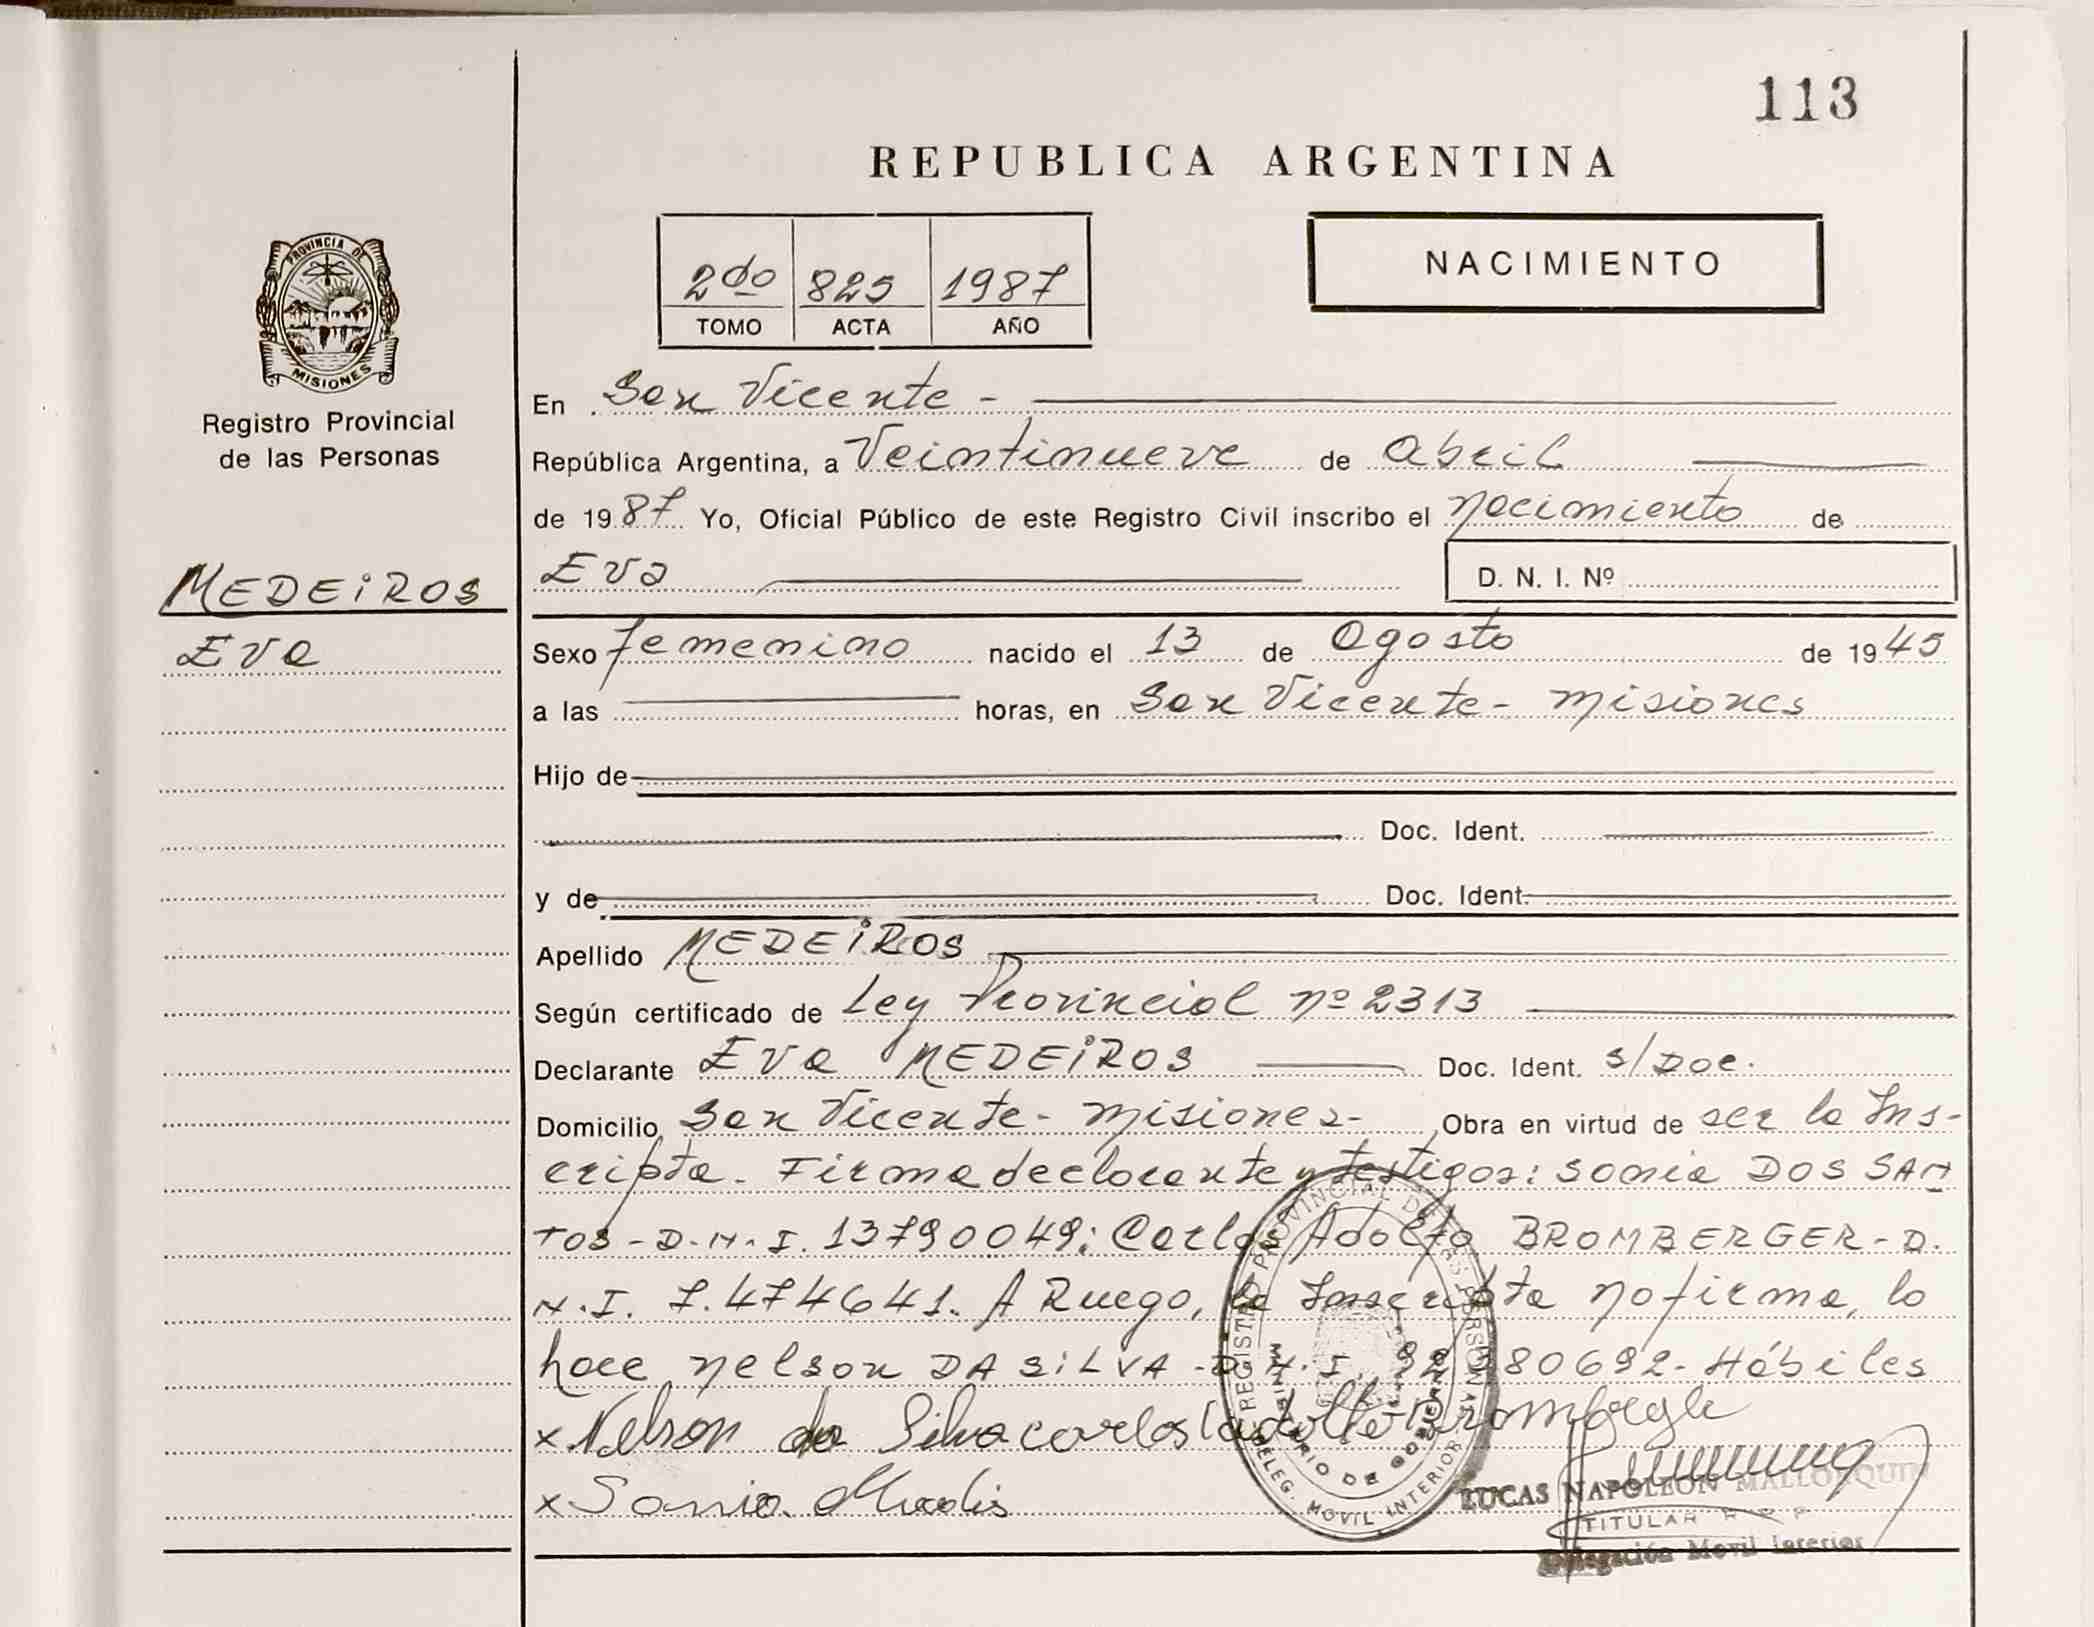 113
REPUBLICA ARGENTINA
2do 825 1987
TOMO ACTA AÑO
NACIMIENTO
PROVINCIA DE
MISIONES
Registro Provincial
de las Personas
MEDEiROS
Eva
En San Vicente -
República Argentina, a Veintinueve de Abril
de 1987 Yo, Oficial Público de este Registro Civil inscribo el nacimiento de
Eva D. N. I. Nº
Sexo femenino nacido el 13 de Agosto de 1945
a las horas, en San Vicente - Misiones
Hijo de
Doc. Ident.
y de Doc. Ident.
Apellido MEDEiROS
Según certificado de Ley Provincial nº 2313
Declarante Eva MEDEiROS Doc. Ident. s/Doc.
Domicilio San Vicente - Misiones - Obra en virtud de ser la Ins-
cripta. Firma declarante y testigos: Sonia DOS SAN
TOS - D.N.I. 13790049; Carlos Adolfo BROMBERGER - D.
N.I. 7.474641. A Ruego, la Inscripta no firma, lo
hace Nelson DA SiLVA - D.N.I. 80692 - Hábiles
x Nelson da Silva carlos adolfo
x Sonia
REGISTRO PROVINCIAL DE LAS PERSONAS
MINISTERIO DE GOBIERNO
DELEG. MOVIL INTERIOR
LUCAS NAPOLEON MALLORQUIN
TITULAR
Delegación Movil Interior